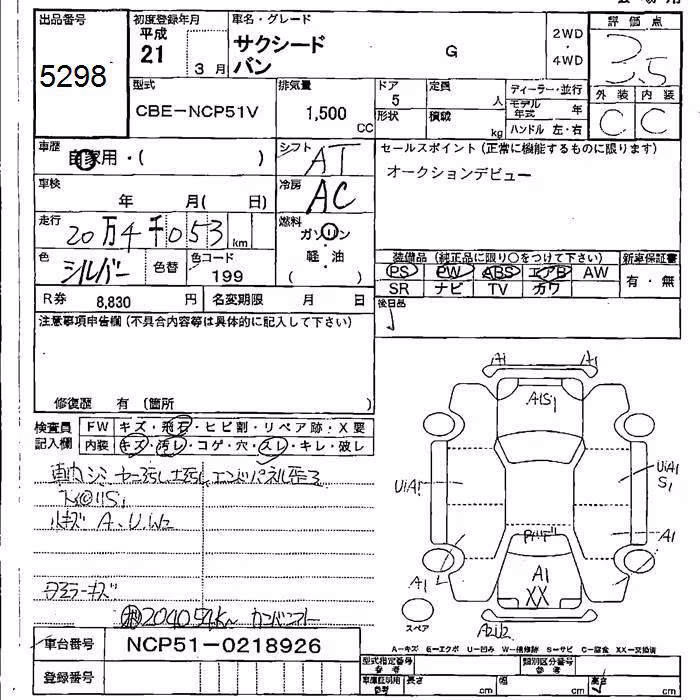 出品番号 初度登録年月 車名・グレード 評価点
平成
5298 21 3月 サクシード バン G 2WD・4WD 3.5
型式 排気量 ドア 定員 ディーラー・並行 外装 内装
CBE-NCP51V 1,500 CC 5 人 モデル年式 年 C C
形状 積載 kg ハンドル 左・右
車歴 自家用・( ) シフト AT セールスポイント(正常に機能するものに限ります)
オークションデビュー
車検 年 月( 日) 冷房 AC
走行 20万4千053 km 燃料 ガソリン
軽・油
( )
色 シルバー 色替 色コード 199
装備品(純正品に限り○をつけて下さい) 新車保証書
PS PW ABS エアB AW 有・無
SR ナビ TV カワ
R券 8,830 円 名変期限 月 日 後日品
注意事項申告欄(不具合内容等は具体的に記入して下さい)
修復歴 有 (箇所 )
検査員 FW キズ・飛石・ヒビ割・リペア跡・X要
記入欄 内装 キズ・汚レ・コゲ・穴・スレ・キレ・破レ
A1 A1
A1S1
UiA1 UiA1
S1
A1 A1
A1
XX
スペア
A2U2
車内シミ
小キズ A.U.W2
204054km
車台番号 NCP51-0218926
登録番号
A-キズ E-エクボ U-凹み W-補修跡 S-サビ C-腐食 XX-交換済
型式指定番号 参考 類別区分番号 参考
車庫証明用 参考 長さ cm 幅 cm 高さ cm